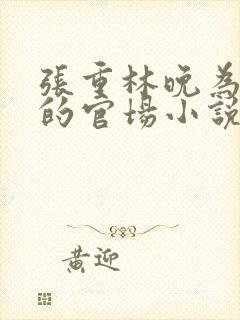 張重林晚為
的官場小說
黃迎